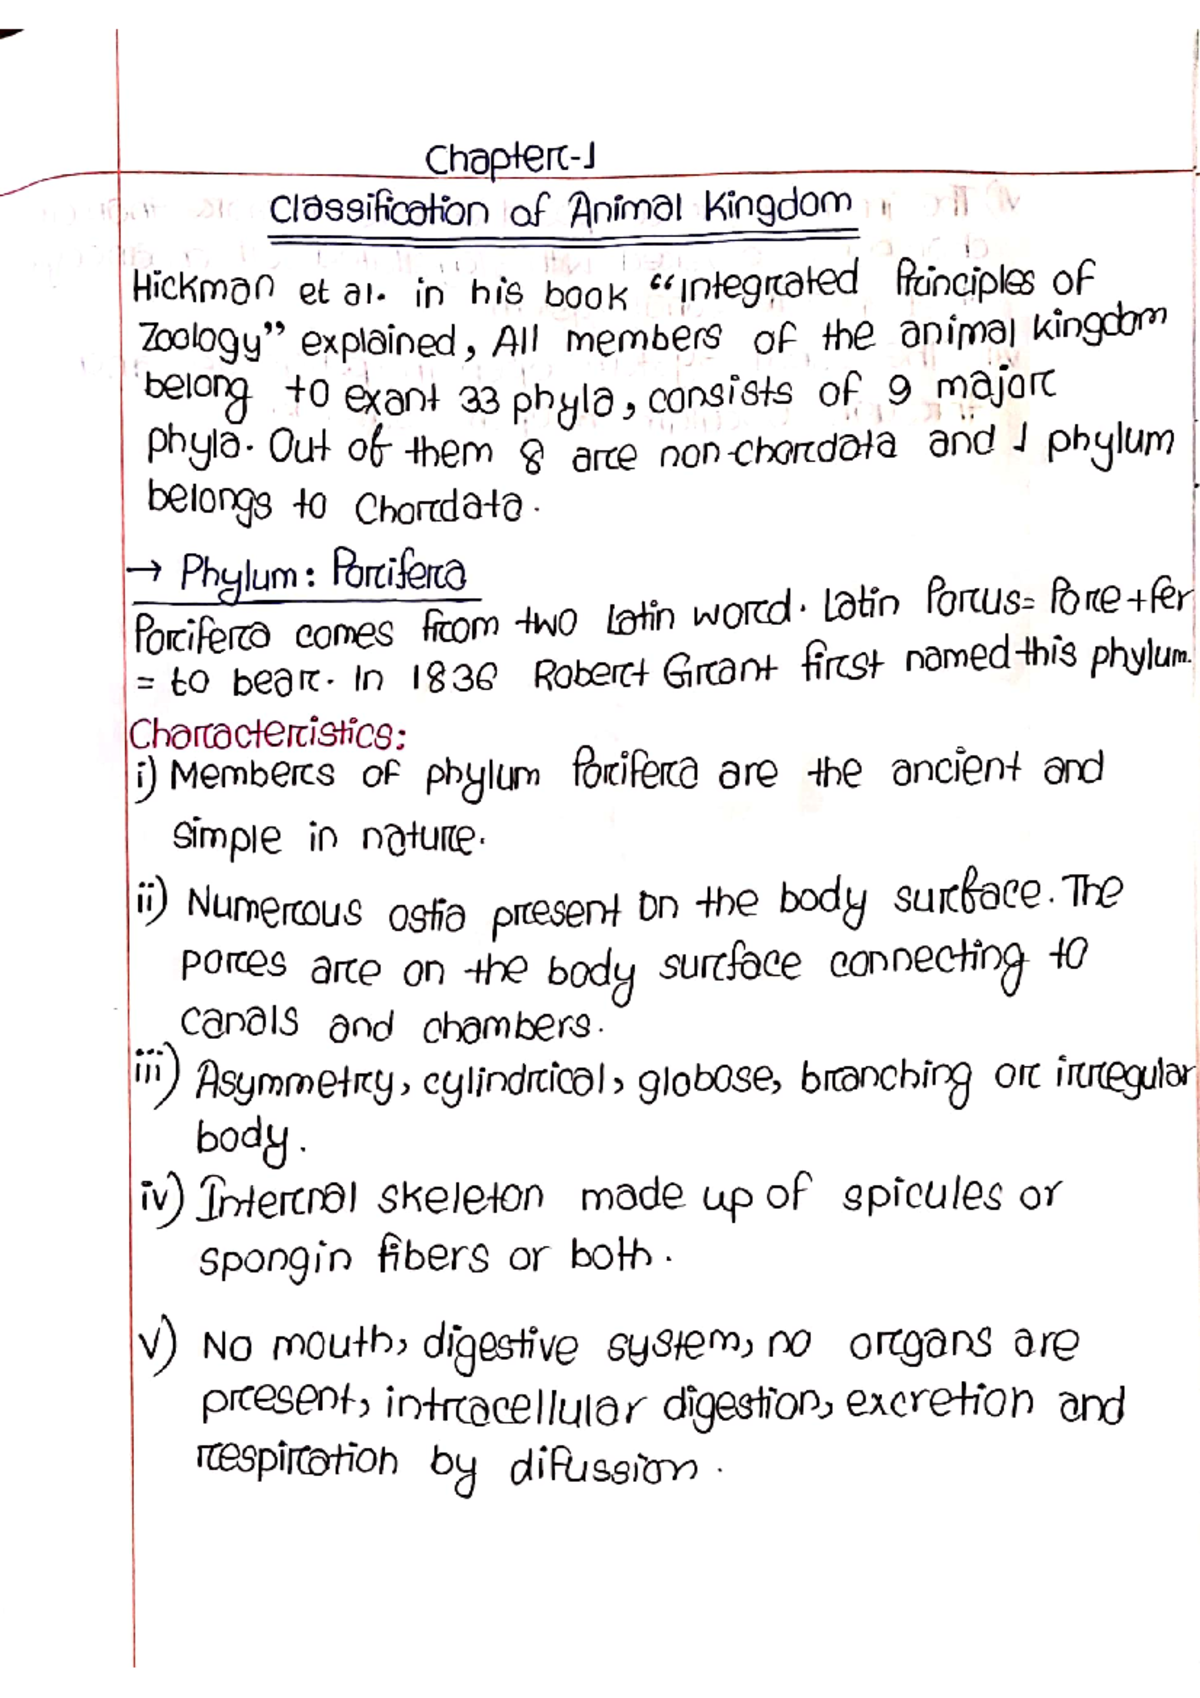 Chapter-1
Classification of Animal Kingdom
Hickman et al. in his book “Integrated Principles of
Zoology” explained, All members of the animal kingdom
belong to exant 33 phyla, consists of 9 major
phyla. Out of them 8 are non-chordata and 1 phylum
belongs to Chordata.
→ Phylum: Porifera
Porifera comes from two Latin word. Latin Porus= Pore+fer
= to bear. In 1836 Robert Grant first named this phylum.
Characteristics:
i) Members of phylum Porifera are the ancient and
simple in nature.
ii) Numerous ostia present on the body surface. The
pores are on the body surface connecting to
canals and chambers.
iii) Asymmetry, cylindrical, globose, branching or irregular
body.
iv) Internal skeleton made up of spicules or
spongin fibers or both.
v) No mouth, digestive system, no organs are
present, intracellular digestion, excretion and
respiration by difussion.